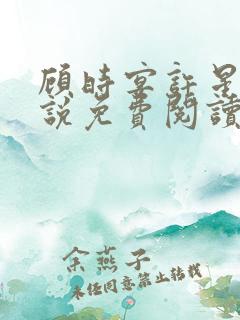 顾时宴許星
說免費閱讀
余燕子
未任同意禁止转载